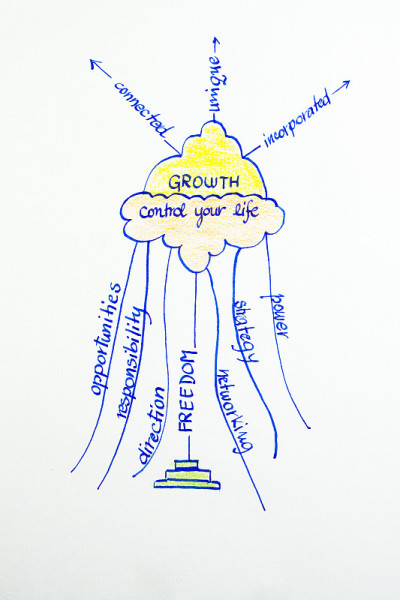 connected
unique
incorporated
GROWTH
Control your life
opportunities
responsibility
direction
FREEDOM
networking
strategy
power